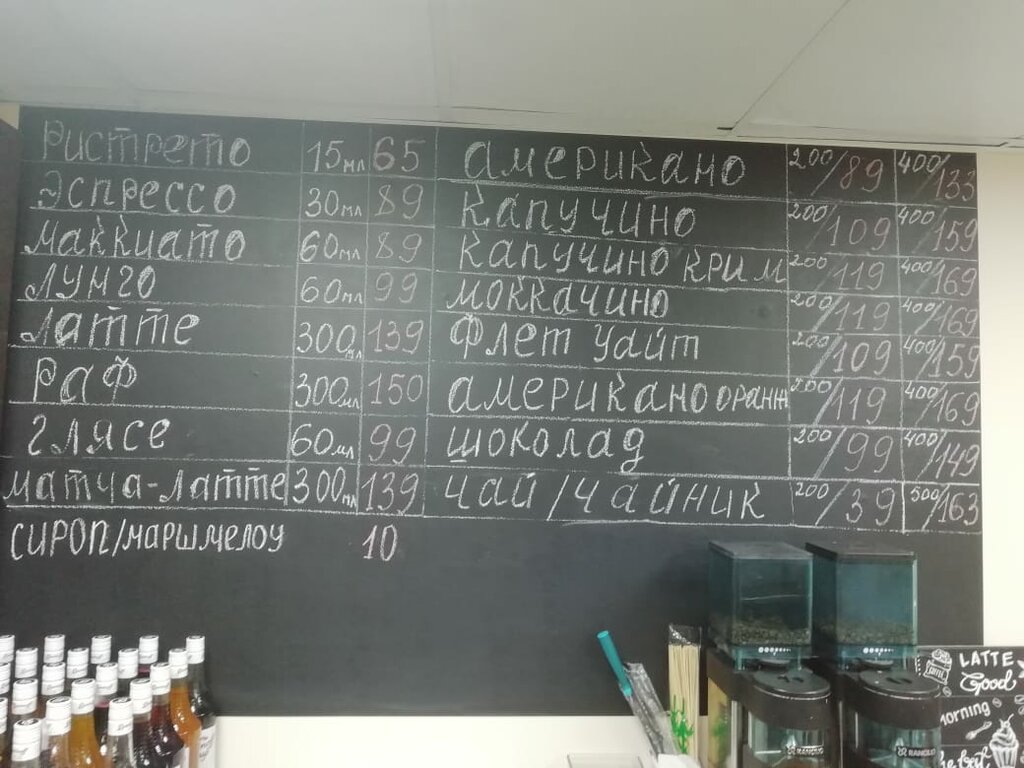 Ристрето 15мл 65
Эспрессо 30мл 89
Маккиато 60мл 89
Лунго 60мл 99
Латте 300мл 139
Раф 300мл 150
Глясе 60мл 99
Матча-латте 300мл 139
Сироп/маршмелоу 10
Американо 200/89 400/133
Капучино 200/109 400/159
Капучино крим 200/119 400/169
Моккачино 200/119 400/169
Флет Уайт 200/109 400/159
Американо оранж 200/119 400/169
Шоколад 200/99 400/149
Чай/Чайник 200/39 500/163
LATTE
Good
morning